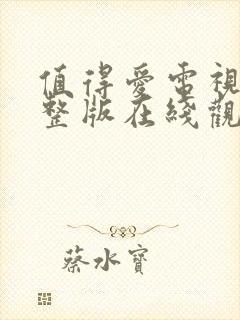 值得爱電視
整版在綫觀
蔡水寶